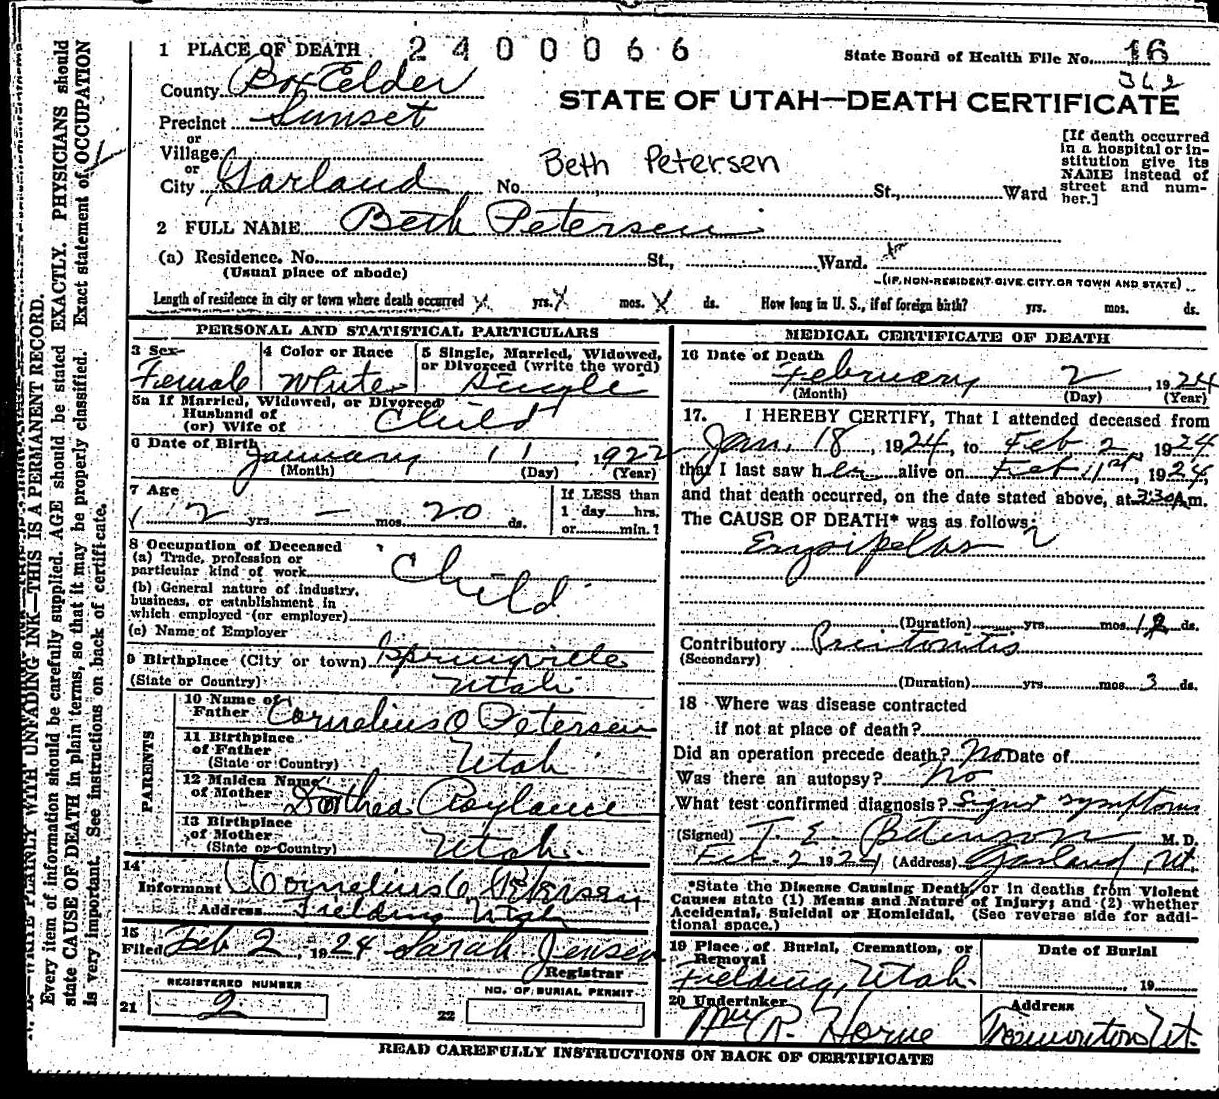 1 PLACE OF DEATH 2400066
State Board of Health File No. 16
362
County Box Elder
STATE OF UTAH—DEATH CERTIFICATE
Precinct Sunset
or
Village
or
City Garland No. Beth Petersen St., Ward
[If death occurred in a hospital or in-
stitution give its
NAME instead of
street and num-
ber.]
2 FULL NAME Beth Petersen
(a) Residence. No. St., Ward.
(Usual place of abode) (IF NON-RESIDENT GIVE CITY OR TOWN AND STATE)
Length of residence in city or town where death occurred X yrs. X mos. X ds. How long in U. S., if of foreign birth? yrs. mos. ds.
PERSONAL AND STATISTICAL PARTICULARS
3 Sex 4 Color or Race 5 Single, Married, Widowed,
or Divorced (write the word)
Female White Single
5a If Married, Widowed, or Divorced
Husband of
(or) Wife of Child
6 Date of Birth
January 11, 1922
(Month) (Day) (Year)
7 Age
2 yrs. — mos. 20 ds.
If LESS than
1 day hrs.
or min.?
8 Occupation of Deceased
(a) Trade, profession or
particular kind of work Child
(b) General nature of industry,
business, or establishment in
which employed (or employer)
(c) Name of Employer
9 Birthplace (City or town) Springville
(State or Country) Utah
PARENTS
10 Name of
Father Cornelius O Petersen
11 Birthplace
of Father
(State or Country) Utah
12 Maiden Name
of Mother Dorthea Roylance
13 Birthplace
of Mother
(State or Country) Utah
14
Informant Cornelius O Petersen
Address Fielding Utah
15
Filed Feb 2, 1924 Sarah Jensen
Registrar
REGISTERED NUMBER
21 2
NO. OF BURIAL PERMIT
22
MEDICAL CERTIFICATE OF DEATH
16 Date of Death
February 2, 1924
(Month) (Day) (Year)
17. I HEREBY CERTIFY, That I attended deceased from
Jan. 18, 1924, to Feb 2 1924
that I last saw her alive on Feb 1st, 1924,
and that death occurred, on the date stated above, at 3:30 A.m.
The CAUSE OF DEATH* was as follows:
Erysipelas
(Duration) yrs. mos. ds.
Contributory Peritonitis
(Secondary)
(Duration) yrs. mos. 3 ds.
18 Where was disease contracted
if not at place of death?
Did an operation precede death? No Date of
Was there an autopsy? No
What test confirmed diagnosis? Signs symptoms
(Signed) J. E. Betenson M. D.
Feb. 2 1924 (Address) Garland, Ut.
*State the Disease Causing Death, or in deaths from Violent
Causes state (1) Means and Nature of Injury; and (2) whether
Accidental, Suicidal or Homicidal. (See reverse side for addi-
tional space.)
19 Place of Burial, Cremation, or
Removal
Fielding, Utah.
Date of Burial
19
20 Undertaker
Wm R. Horne
Address
Tremonton Ut.
READ CAREFULLY INSTRUCTIONS ON BACK OF CERTIFICATE
WRITE PLAINLY WITH UNFADING INK—THIS IS A PERMANENT RECORD.
Every item of information should be carefully supplied. AGE should be stated EXACTLY. PHYSICIANS should
state CAUSE OF DEATH in plain terms, so that it may be properly classified. Exact statement of OCCUPATION
is very important. See instructions on back of certificate.